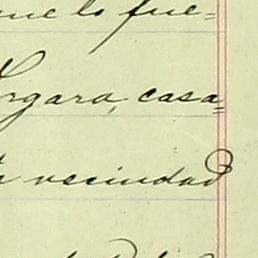 me lo fue=
rgara, casa=
vecindad